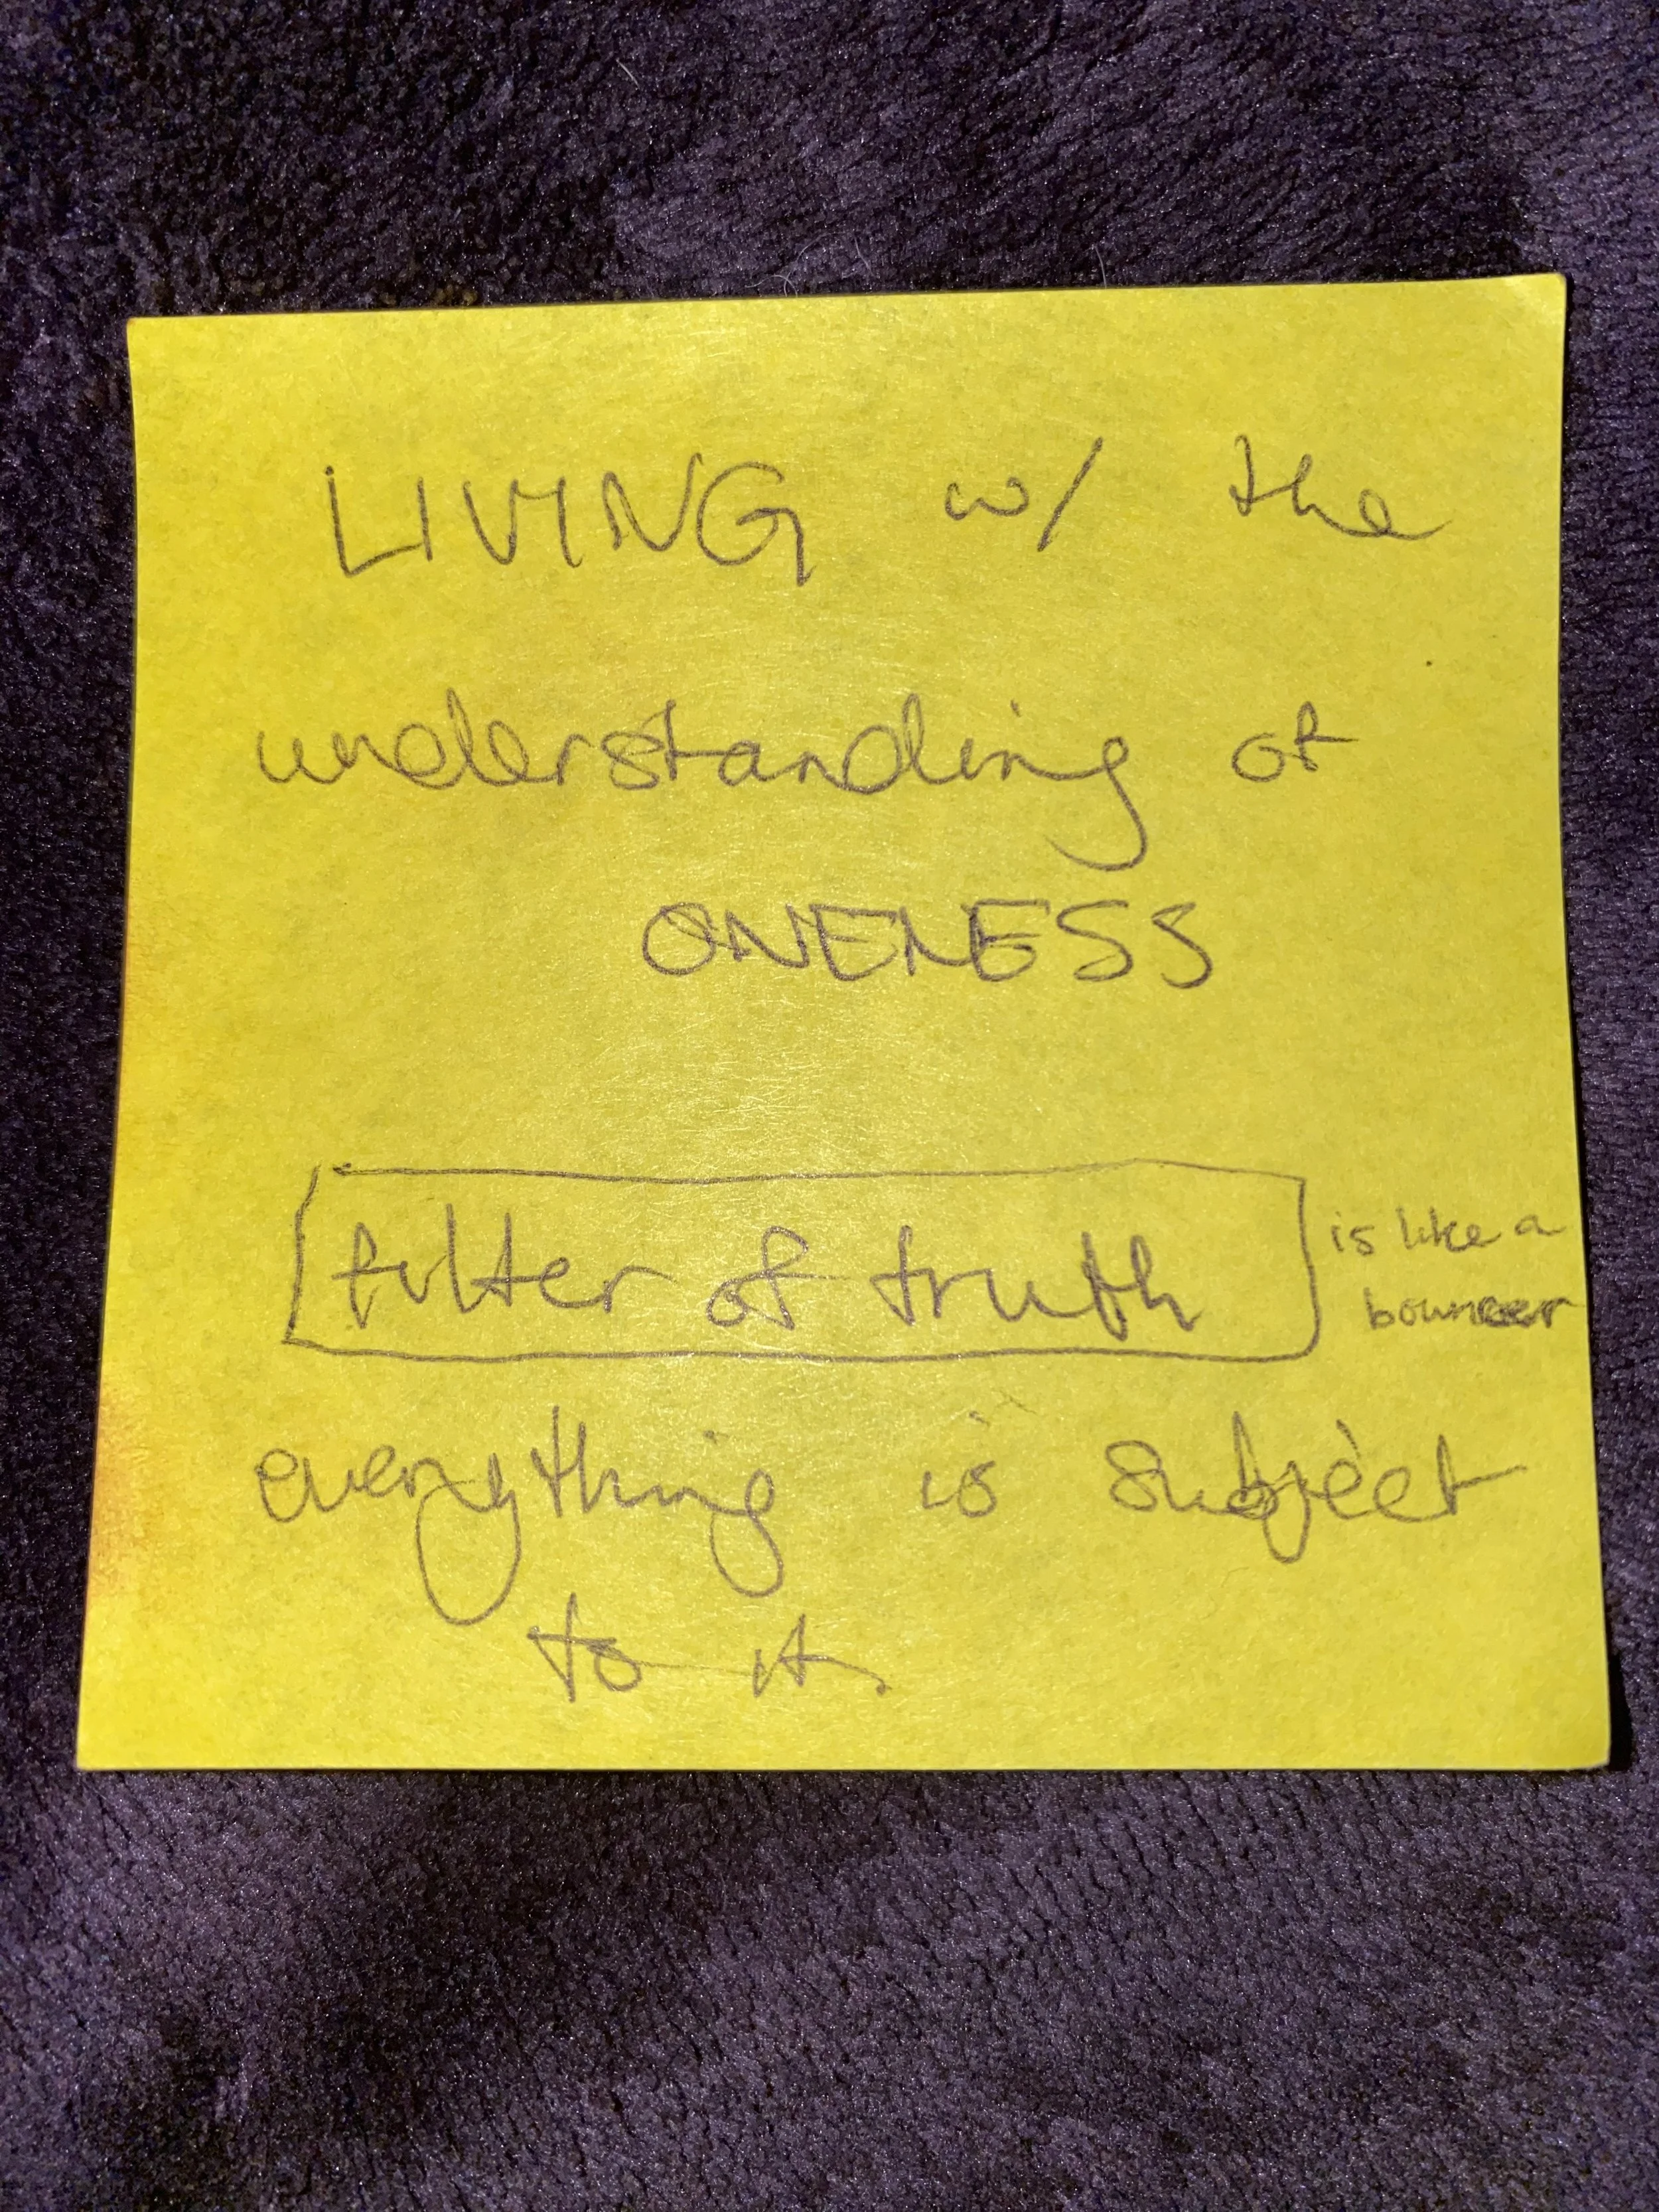 LIVING w/ the
understanding of
ONENESS
filter of truth is like a
bouncer
everything is subject
to it.